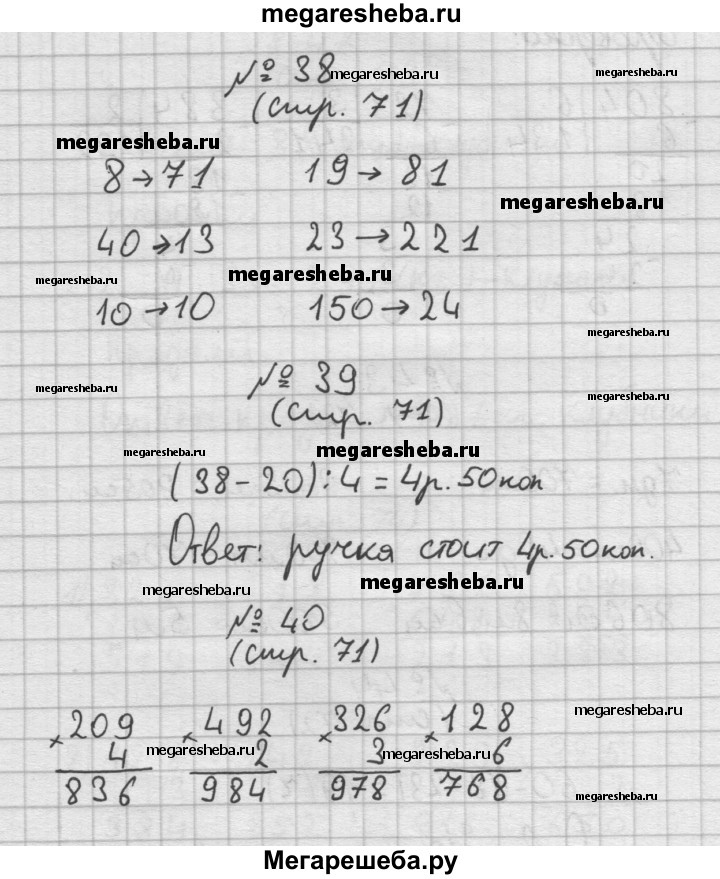 megaresheba.ru
№ 38 megaresheba.ru megaresheba.ru
(стр. 71)
megaresheba.ru
8→71 19→ 81
megaresheba.ru
40→13 23→221
megaresheba.ru megaresheba.ru
10→10 150→24
megaresheba.ru
№ 39
megaresheba.ru megaresheba.ru
(стр. 71)
megaresheba.ru megaresheba.ru
(38-20):4=4р.50коп
Ответ: ручка стоит 4р.50коп.
megaresheba.ru megaresheba.ru
№ 40
(стр. 71)
megaresheba.ru
×209 ×492 ×326 ×128
4 megaresheba.ru 2 3 megaresheba.ru 6
836 984 978 768
megaresheba.ru
Мегарешеба.ру